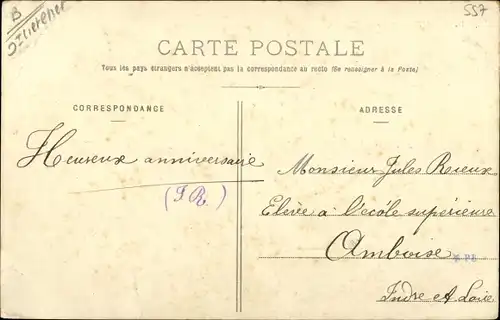 B
557
CARTE POSTALE
Tous les pays étrangers n'acceptent pas la correspondance au recto (Se renseigner à la Poste)
CORRESPONDANCE
ADRESSE
Heureux anniversaire
(J R)
Monsieur Jules Rieux
Elève a l'école supérieure
Amboise
Indre et Loire